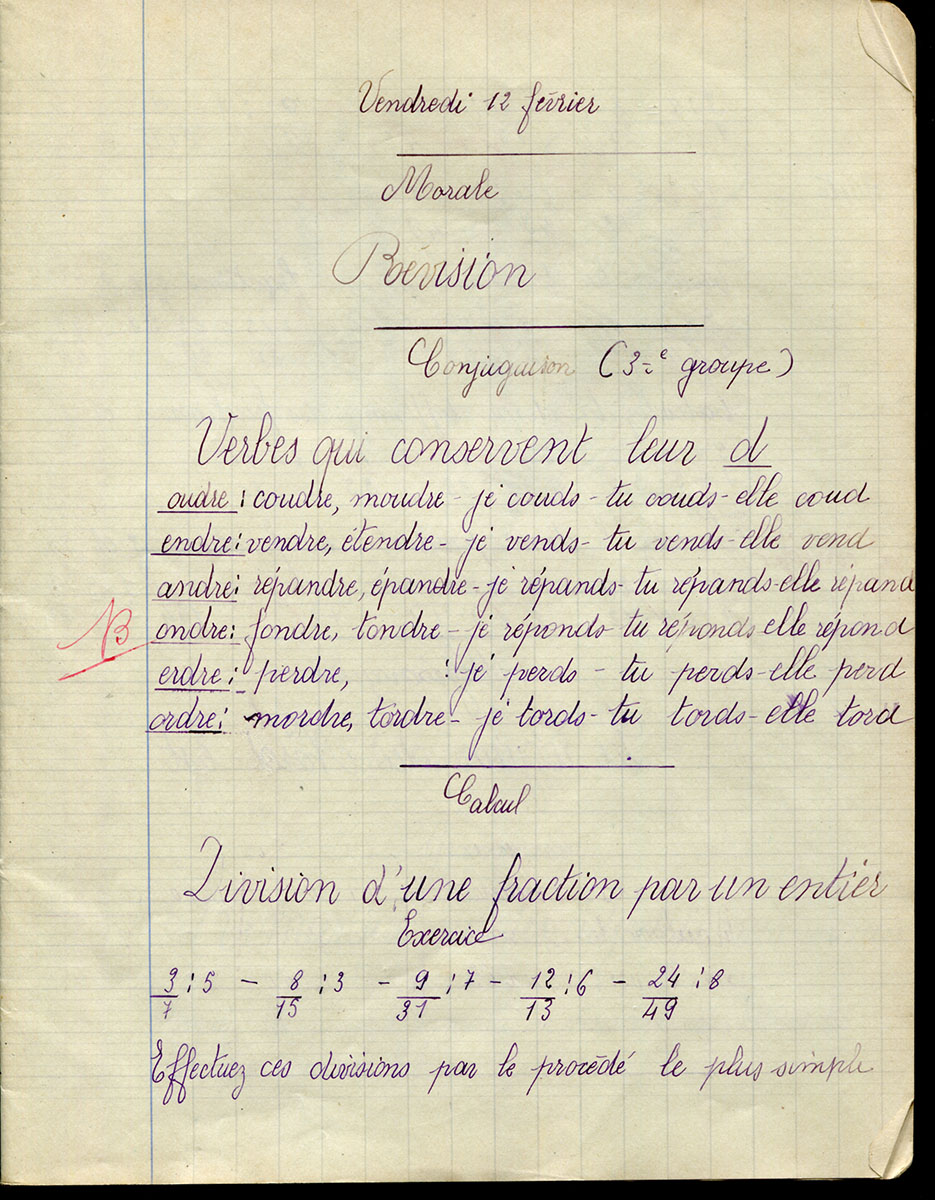 Vendredi 12 février
Morale
Révision
Conjugaison (3e groupe)
Verbes qui conservent leur d
oudre : coudre, moudre - je couds - tu couds - elle coud
endre : vendre, étendre - je vends - tu vends - elle vend
andre : répandre, épandre - je répands - tu répands - elle répand
B ondre : fondre, tondre - je réponds - tu réponds elle répond
erdre : - perdre, : je perds - tu perds - elle perd
ordre : - mordre, tordre - je tords - tu tords - elle tord
Calcul
Division d'une fraction par un entier
Exercice
3/7 : 5 - 8/15 : 3 - 9/31 : 7 - 12/13 : 6 - 24/49 : 8
Effectuez ces divisions par le procédé le plus simple